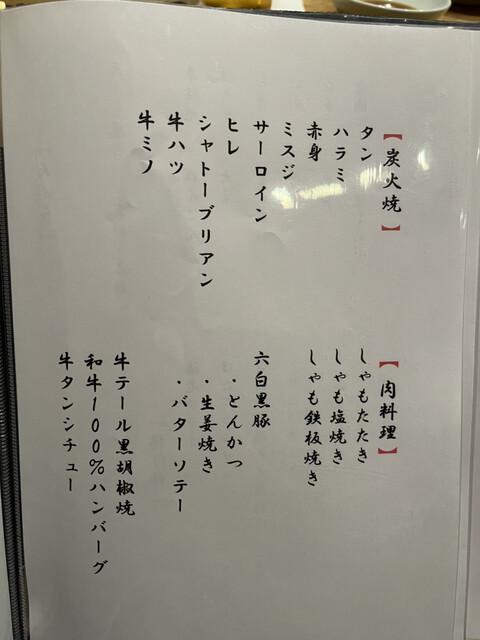 【炭火焼】
タン
ハラミ
赤身
ミスジ
サーロイン
ヒレ
シャトーブリアン
牛ハツ
牛ミノ
【肉料理】
しゃもたたき
しゃも塩焼き
しゃも鉄板焼き
六白黒豚
・とんかつ
・生姜焼き
・バターソテー
牛テール黒胡椒焼
和牛100%ハンバーグ
牛タンシチュー